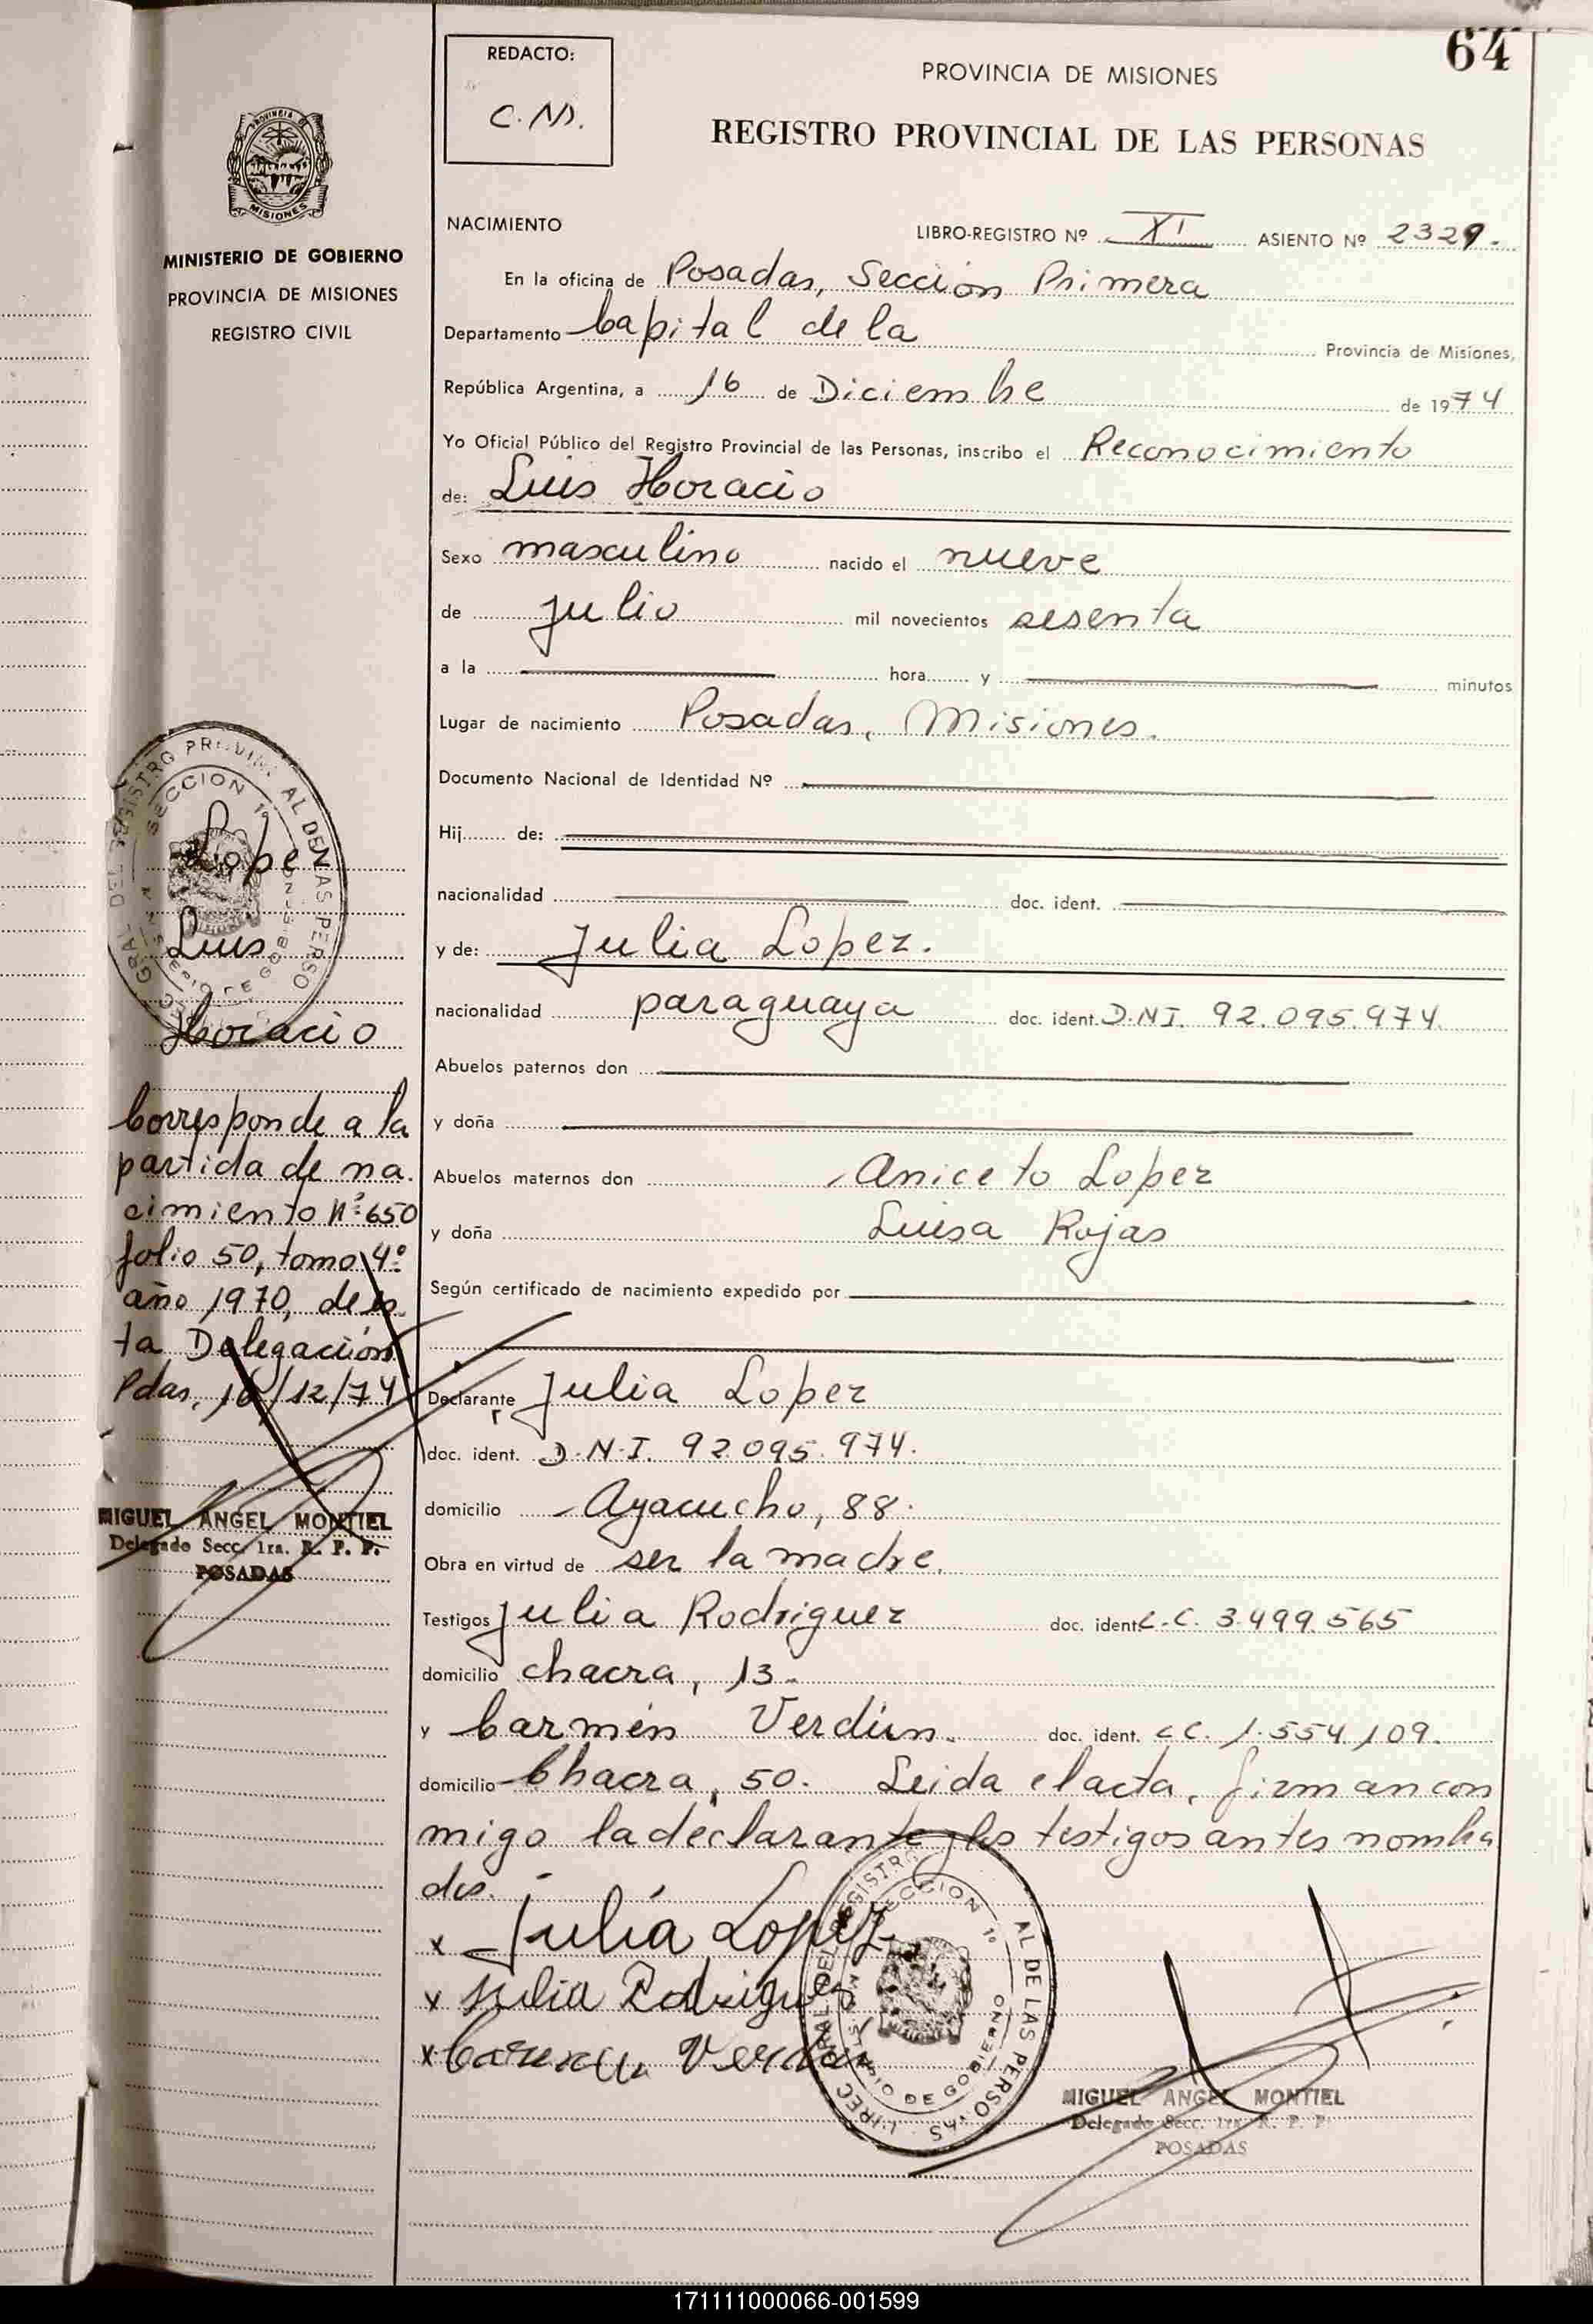 64
REDACTO:
C.M.
PROVINCIA DE MISIONES
REGISTRO PROVINCIAL DE LAS PERSONAS
PROVINCIA DE
MISIONES
MINISTERIO DE GOBIERNO
PROVINCIA DE MISIONES
REGISTRO CIVIL
NACIMIENTO
LIBRO-REGISTRO Nº XI ASIENTO Nº 2329.
En la oficina de Posadas, Sección Primera
Departamento Capital de la Provincia de Misiones,
República Argentina, a 16 de Diciembre de 1974
Yo Oficial Público del Registro Provincial de las Personas, inscribo el Reconocimiento
de: Luis Horacio
Sexo masculino nacido el nueve
de julio mil novecientos sesenta
a la hora y minutos
Lugar de nacimiento Posadas, Misiones.
Documento Nacional de Identidad Nº
Hij de:
nacionalidad doc. ident.
y de: Julia Lopez.
nacionalidad paraguaya doc. ident. D.N.I. 92.095.974.
Abuelos paternos don
y doña
Abuelos maternos don Aniceto Lopez
y doña Luisa Rojas
Según certificado de nacimiento expedido por
Declarante Julia Lopez
doc. ident. D.N.I. 92.095.974.
domicilio Ayacucho, 88.
Obra en virtud de ser la madre.
Testigos Julia Rodriguez doc. ident. L.C. 3.499.565
domicilio chacra, 13.
y Carmen Verdún. doc. ident. L.C. 1.554.109.
domicilio Chacra, 50. Leida el acta, firman con
migo la declarante y los testigos antes nombra
dos.
x Julia Lopez
x Julia Rodriguez
x Carmen Verdun
SECCION 1º
MIGUEL ANGEL MONTIEL
Delegado Secc. 1ra. R. P. P.
POSADAS
SECCION 1º
Lope
Luis
Horacio
Corresponde a la
partida de na.
cimiento Nº 650
folio 50, tomo 4º
año 1970, de es
ta Delegación
Pdas, 16/12/74
MIGUEL ANGEL MONTIEL
Delegado Secc. 1ra. R. P. P.
POSADAS
171111000066-001599